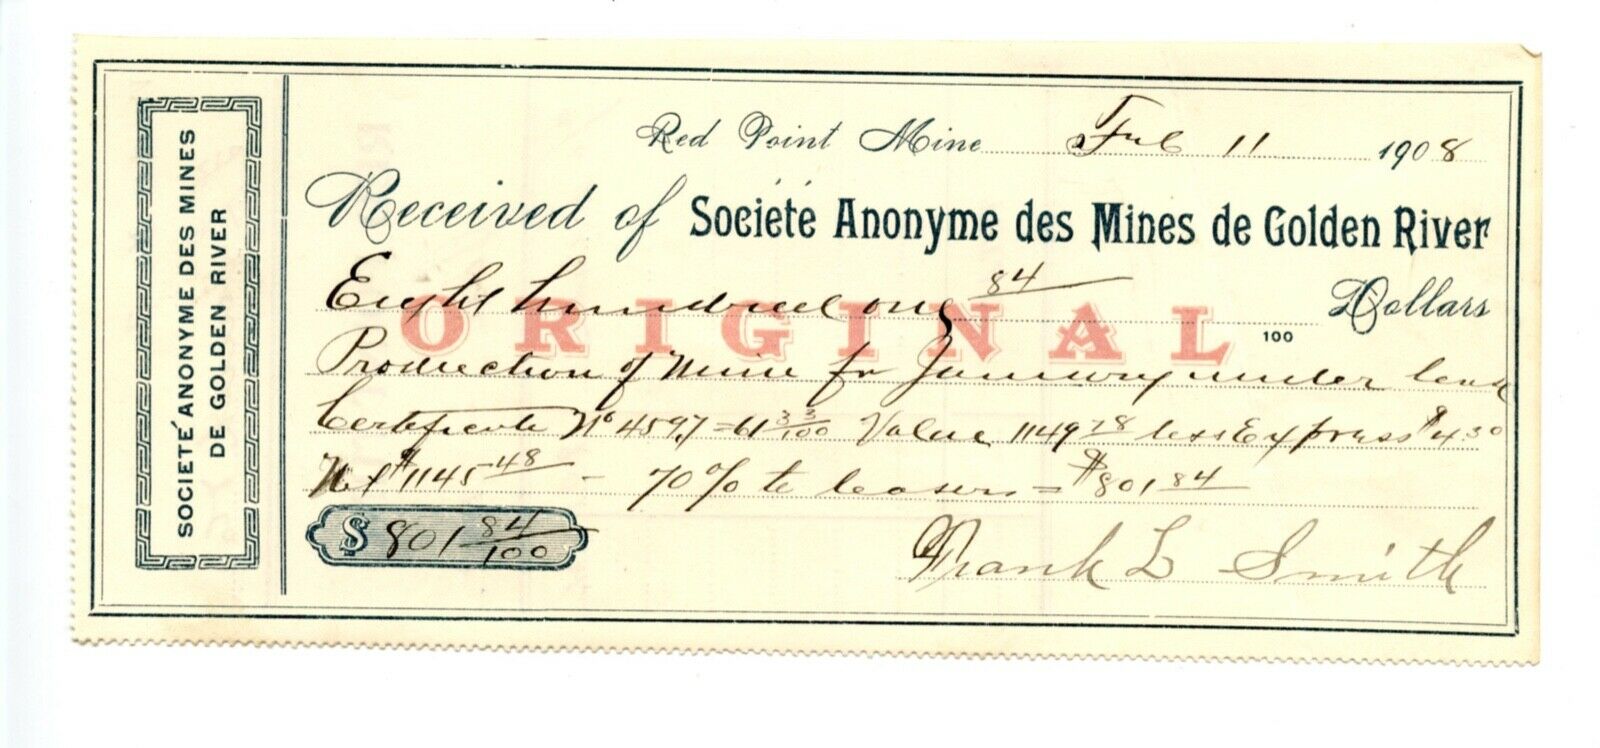 SOCIETÉ ANONYME DES MINES
DE GOLDEN RIVER
Red Point Mine Feb 11 1908
Received of Société Anonyme des Mines de Golden River
Eight hundred one 84/100 Dollars
ORIGINAL
Production of Mine for January under lease
Certificate No 4597 = 61 33/100 Value 1149 78 less Express $4 30
Net $1145 48 - 70% to leasers = $801 84
$ 801 84/100
Frank L Smith